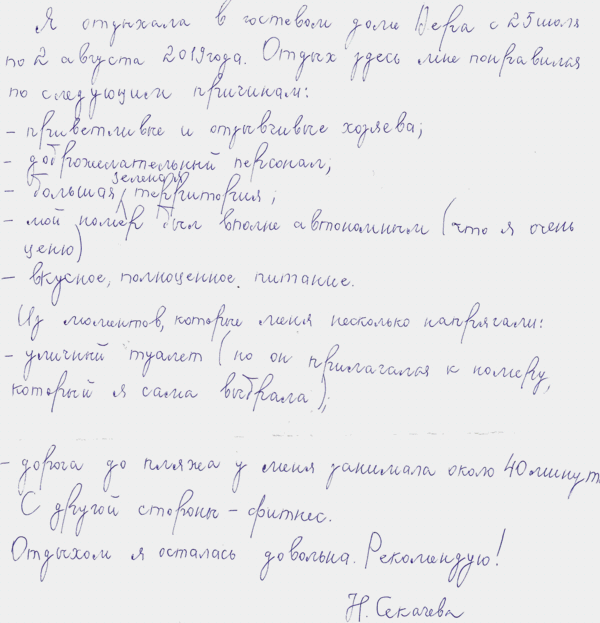 Я отдыхала в гостевом доме Вера с 25 июля
по 2 августа 2019 года. Отдых здесь мне понравился
по следующим причинам:
- приветливые и отзывчивые хозяева;
- доброжелательный персонал;
- большая, зеленая территория;
- мой номер был вполне автономным (что я очень
ценю)
- вкусное, полноценное питание.
Из моментов, которые меня несколько напрягали:
- уличный туалет (но он прилагался к номеру,
который я сама выбрала);
- дорога до пляжа у меня занимала около 40 минут.
С другой стороны - фитнес.
Отдыхом я осталась довольна. Рекомендую!
Н. Секачева